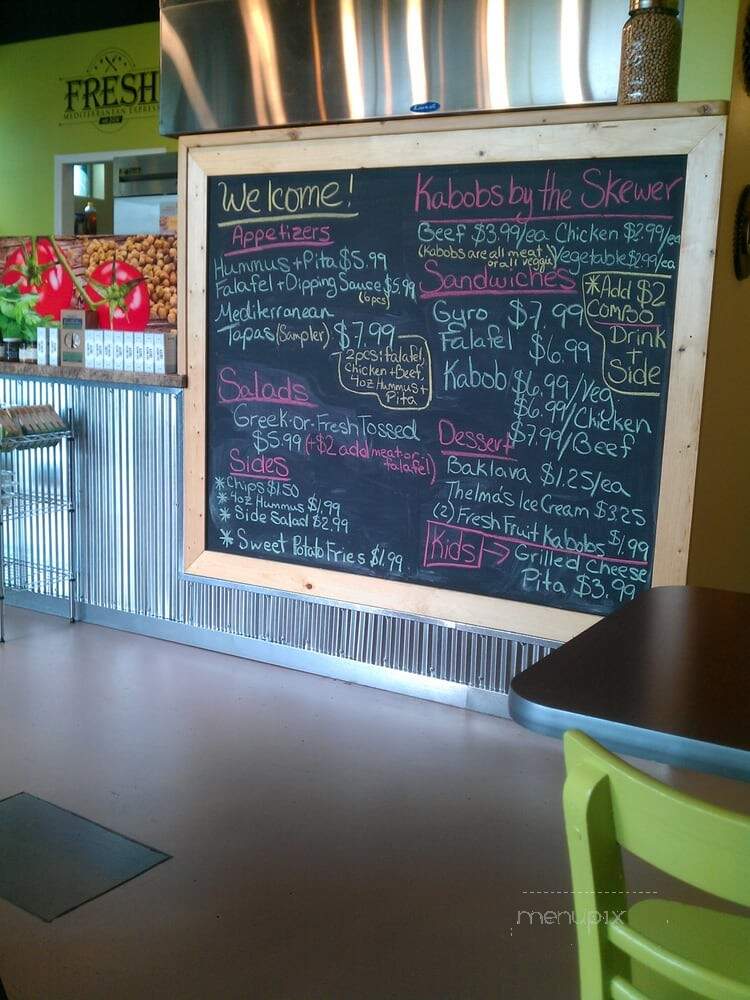 FRESH
MEDITERRANEAN EXPRESS
Welcome!
Appetizers
Hummus + Pita $5.99
Falafel + Dipping Sauce $5.99
(6pcs)
Mediterranean
Tapas (Sampler) $7.99
2pcs: falafel,
Chicken + Beef,
4oz Hummus +
Pita
Salads
Greek-or-Fresh Tossed
$5.99 (+$2 add meat-or-
falafel)
Sides
*Chips $1.50
*4oz Hummus $1.99
*Side Salad $2.99
*Sweet Potato Fries $1.99
Kabobs by the Skewer
Beef $3.99/ea Chicken $2.99/ea
(Kabobs are all meat Vegetable $2.99/ea
or all veggie)
Sandwiches
Gyro $7.99
Falafel $6.99
Kabob $6.99/Veg
$6.99/Chicken
$7.99/Beef
*Add $2
Combo
Drink
+
Side
Dessert
Baklava $1.25/ea
Thelma's Ice Cream $3.25
(2) Fresh Fruit Kabobs $1.99
Kids → Grilled Cheese
Pita $3.99
menupix